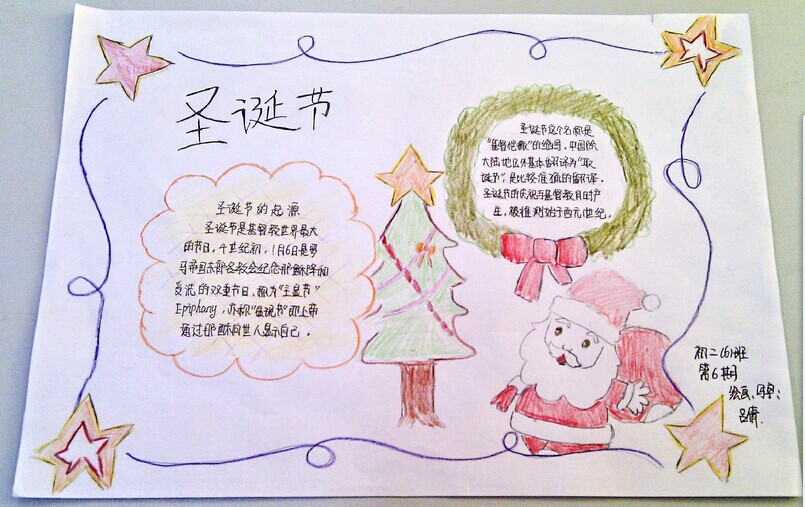 圣诞节
圣诞节的起源
圣诞节是基督教世界最大
的节日。4世纪初,1月6日是罗
马帝国东部各教会纪念耶稣降和
受洗的双重节日、称为“主显节”
Epiphany,亦称“显现节”即上帝
通过耶稣向世人显示自己。
圣诞节这个名称是
“基督弥撒”的缩写。中国除
大陆地区外基本翻译为“耶
诞节”,是比较准确的翻译。
圣诞节的庆祝与基督教同时
生,被推测始于西元1世纪。
初二(6)班
第6期
绘画、